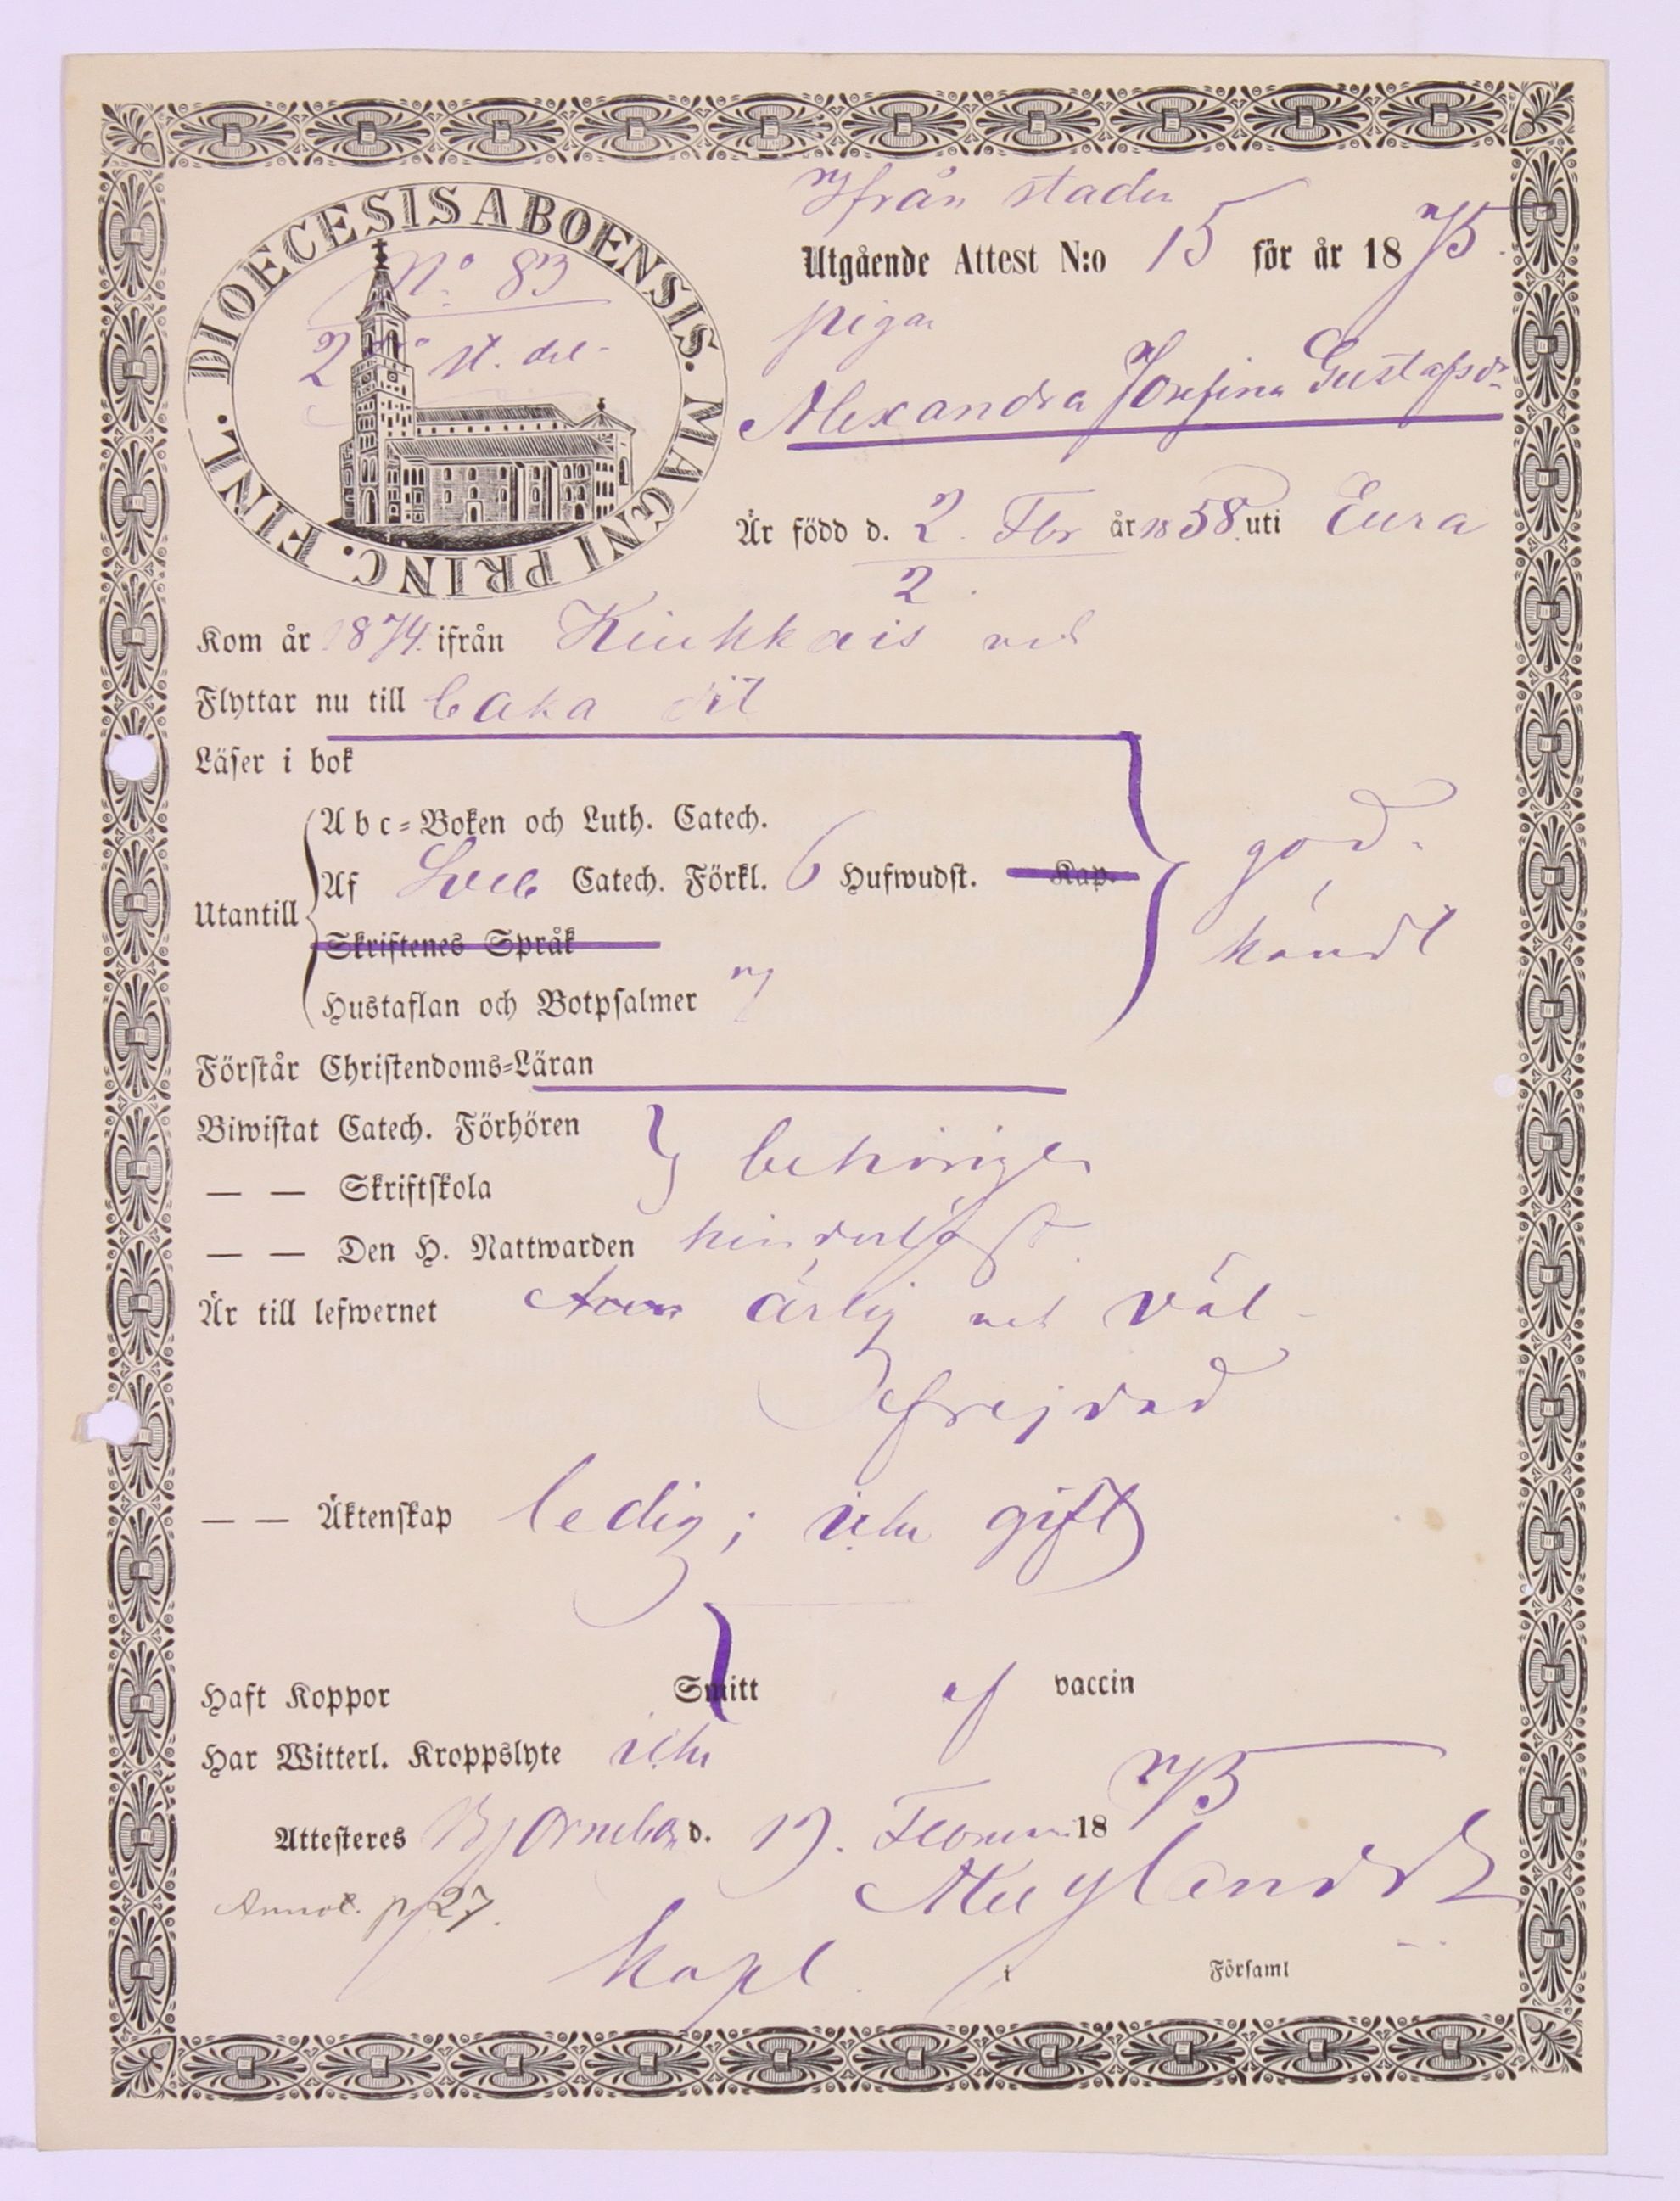 DIOECESIS ABOENSIS. MAGNI PRINC. FINL.
No 83
2 st. del
från staden
Utgående Attest N:o 15 för år 1875.
piga
Alexandra Josefina Gustafsdr
Är född d. 2 Fbr år 1858. uti Eura
2.
Kom år 1874. ifrån Kiukkais
Flyttar nu till baka dit
Läser i bok
Abc-Boken och Luth. Catech.
Af Sveb Catech. Förkl. 6 Hufwudst. Kap.
Utantill
god-
kändt
Skriftenes Språk
Hustaflan och Botpsalmer
Förstår Christendoms-Läran
Biwistat Catech. Förhören
behörigen
— — Skriftskola
— — Den H. Nattwarden
Är till lefwernet ärlig och väl-
frejdad
— — Äktenskap ledig; icke gift
Haft Koppor Smitt af vaccin
Har Witterl. Kroppslyte icke
Attesteres Björneborg d. 19. Februari 1875
Annot. p 27.
Kapl. i Församl